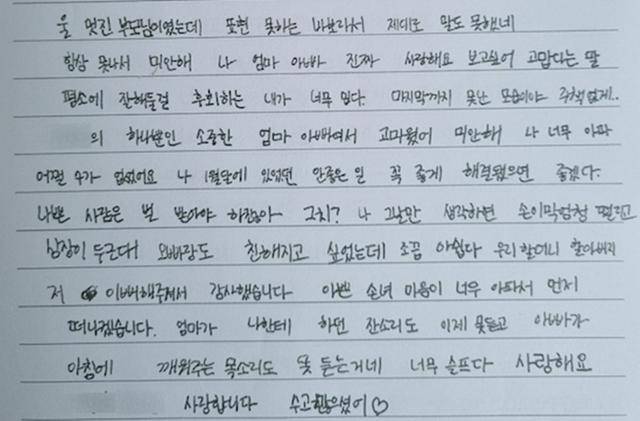 울 멋진 부모님이였는데 표현 못하는 바보라서 제대로 말도 못했네
항상 못나서 미안해 나 엄마 아빠 진짜 사랑해요 보고싶어 고맙다는 말
평소에 잘해둘걸 후회하는 내가 너무 밉다. 마지막까지 못난 모습이야 주책없게..
의 하나뿐인 소중한 엄마 아빠여서 고마웠어 미안해 나 너무 아파
어쩔 수가 없었어요 나 1월달에 있었던 안좋은 일 꼭 좋게 해결됐으면 좋겠다.
나쁜 사람은 벌 받아야 하잖아 그치? 나 그날만 생각하면 손이막엄청 떨리고
심장이 두근대! 오빠랑도 친해지고 싶었는데 조끔 아쉽다 우리할머니 할아버지
저 이뻐해주셔서 감사했습니다 아쁜 손녀 마음이 너무 아파서 먼저
떠나겠습니다. 엄마가 나한테 하던 잔소리도 이제 못듣고 아빠가
아침에 깨워주는 목소리도 못 듣는거네 너무 슬프다 사랑해요
사랑합니다 수고많으셨어♡